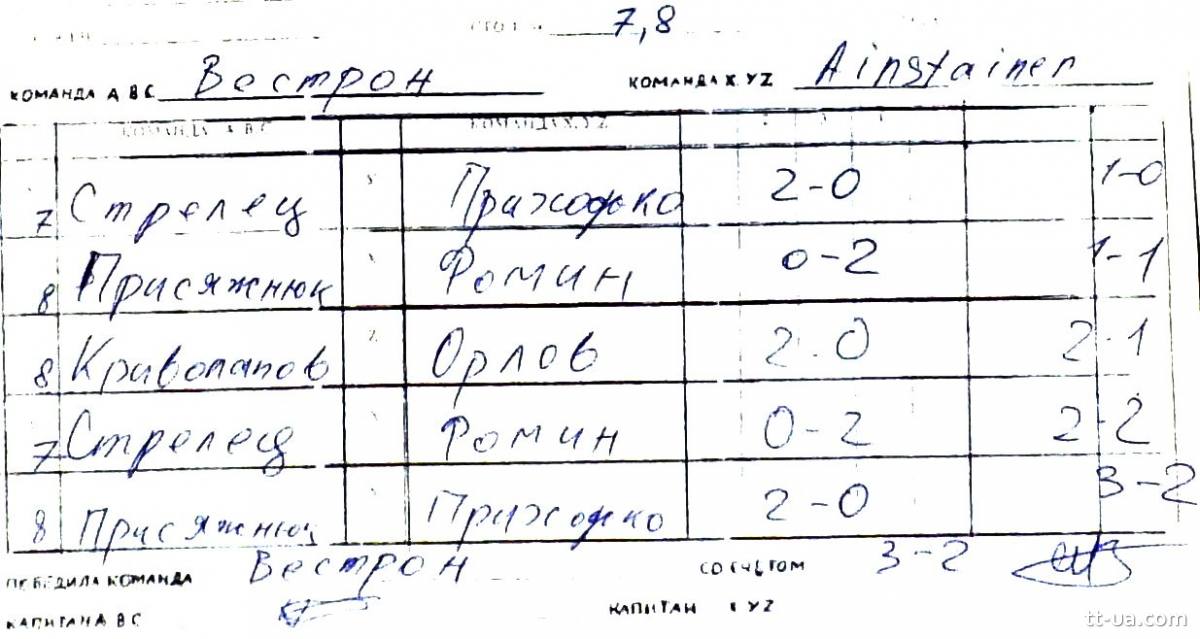 7,8
КОМАНДА А В С Вестрон КОМАНДА X.YZ Ainstainer
КОМАНДА А.В.С КОМАНДА X.Y.Z
7 Стрелец Приходько 2-0 1-0
8 Присяжнюк Фомин 0-2 1-1
8 Кривопапов Z Орлов 2-0 2-1
7 Стрелец Фомин 0-2 2-2
8 Присяжнюк Приходько 2-0 3-2
ПОБЕДИЛА КОМАНДА Вестрон СО СЧЕТОМ 3-2
КАПИТАН А В С КАПИТАН X YZ
tt-ua.com